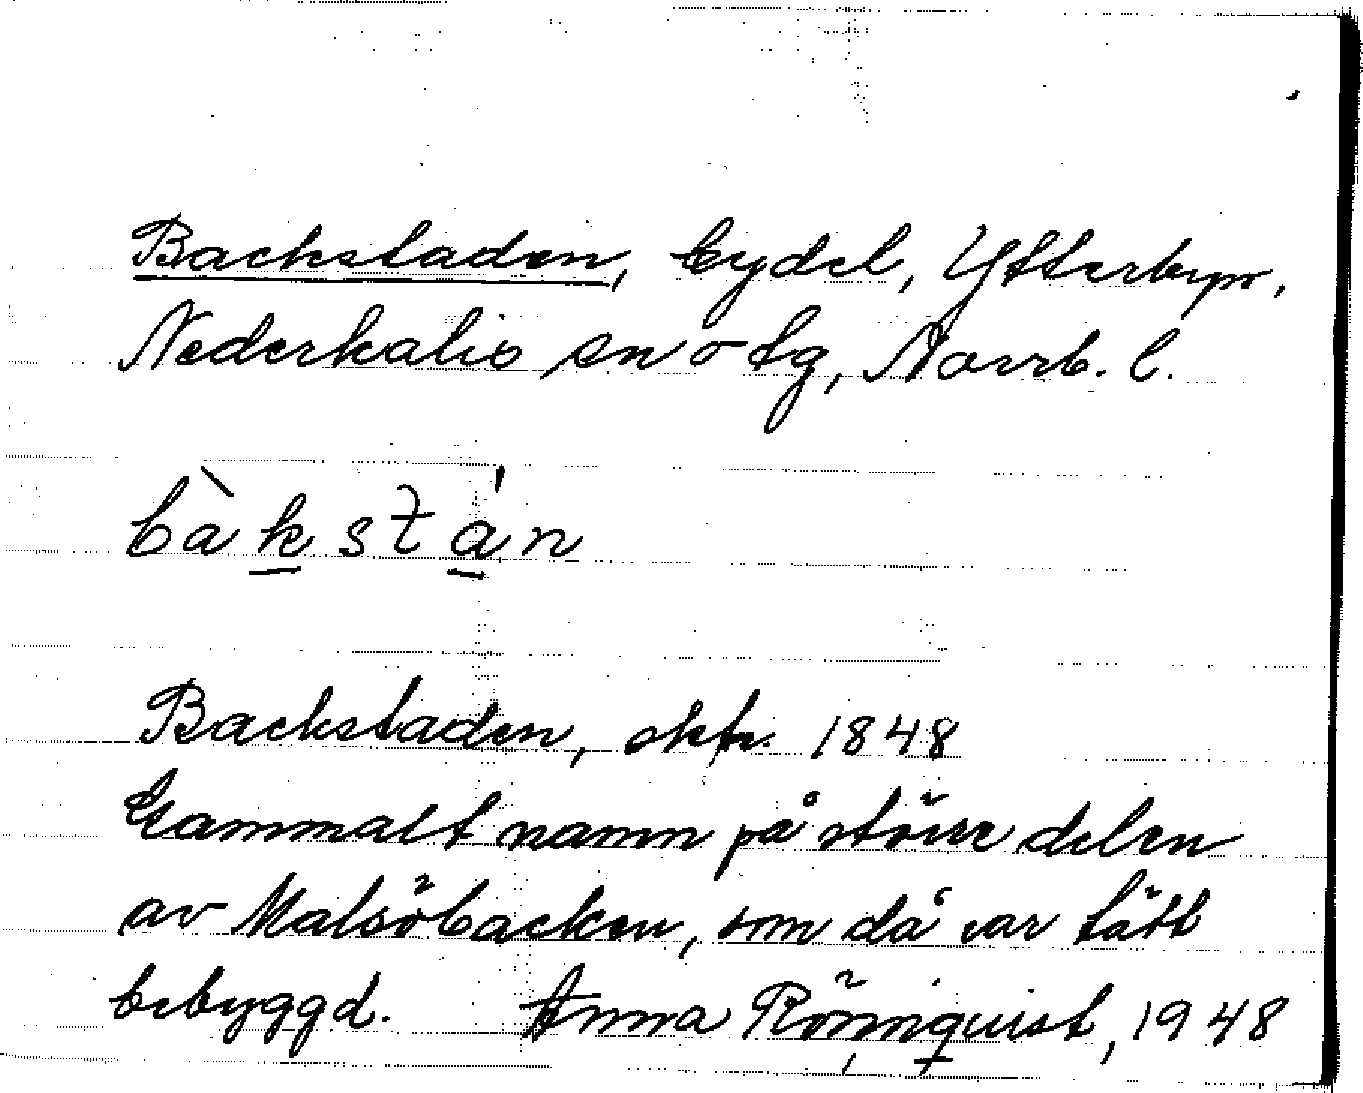 Backstaden, bydel, Ytterbyn,
Nederkalix sn o tg, Norrb. l.
bàkstán
Backstaden, skr. 1848
Gammalt namn på större delen
av Malsöbacken, som då var tätt
bebyggd. Anna Rönnquist, 1948